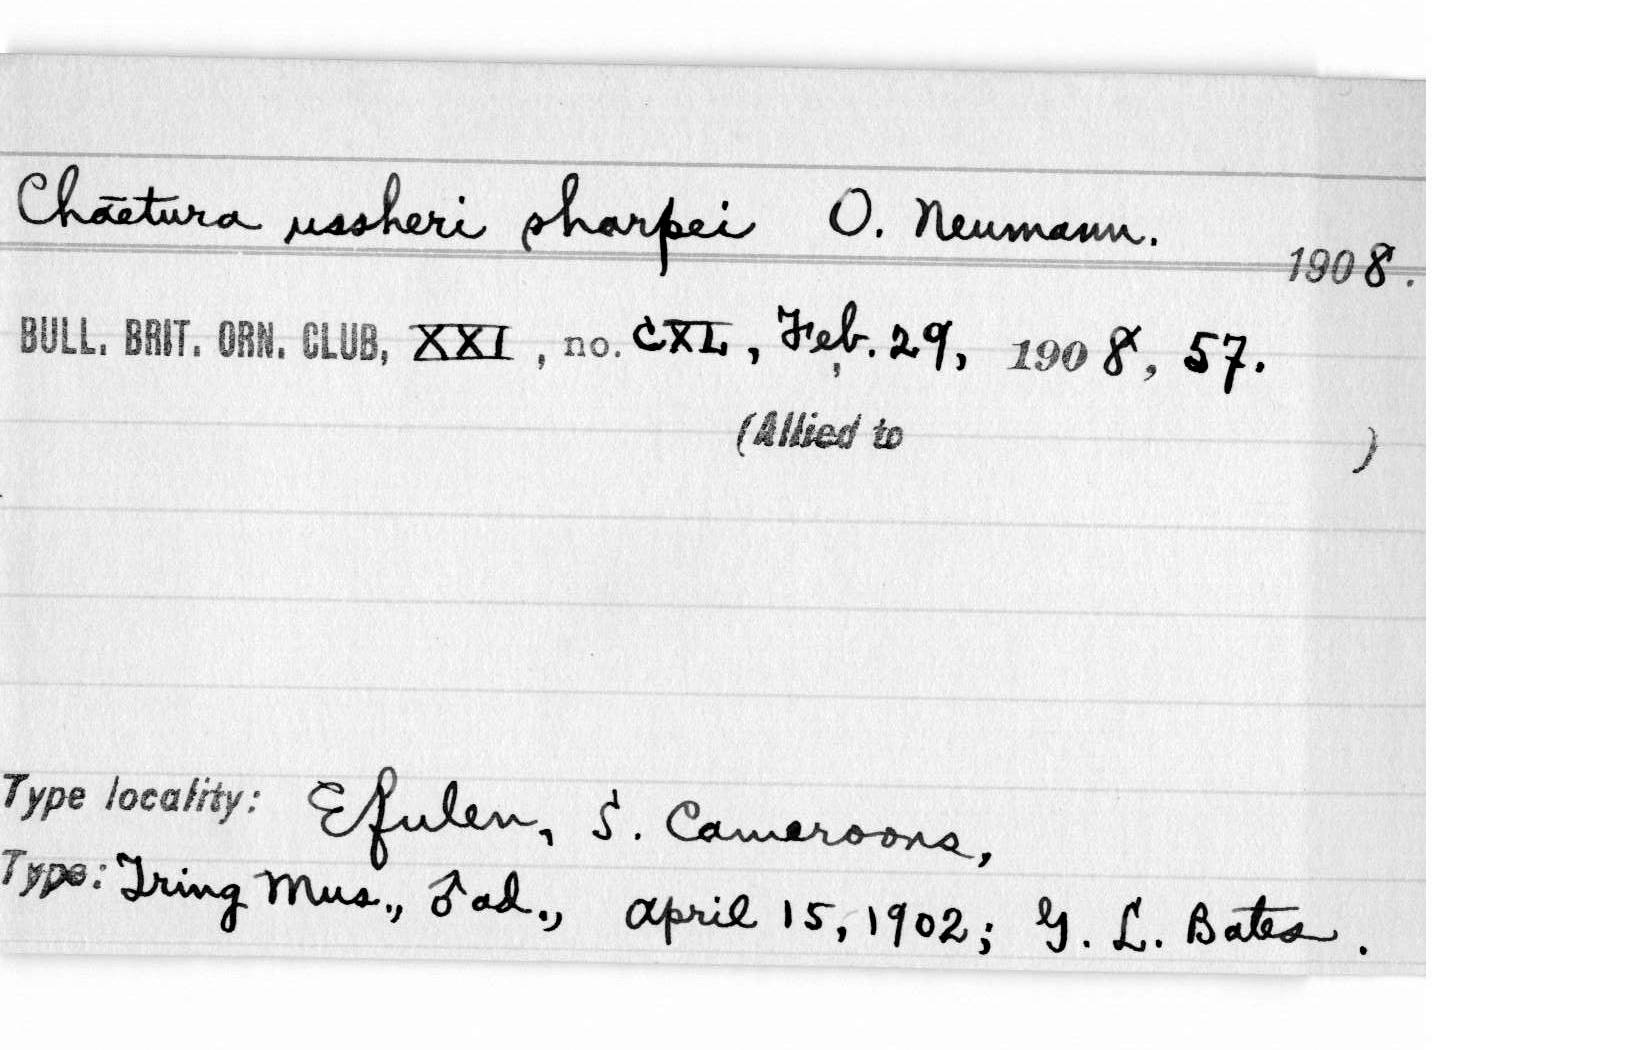 Chaetura ussheri sharpei O. Neumann.
1908.
BULL. BRIT. ORN. CLUB, XXI, no. CXL, Feb. 29, 1908, 57.
(Allied to )
Type locality: Efulen, S. Cameroons,
Type: Tring Mus., ♂ ad., April 15, 1902; G. L. Bates.